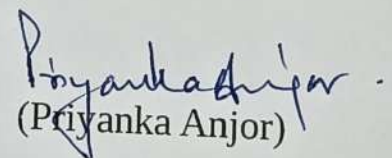 Priyanka Anjor.
(Priyanka Anjor)